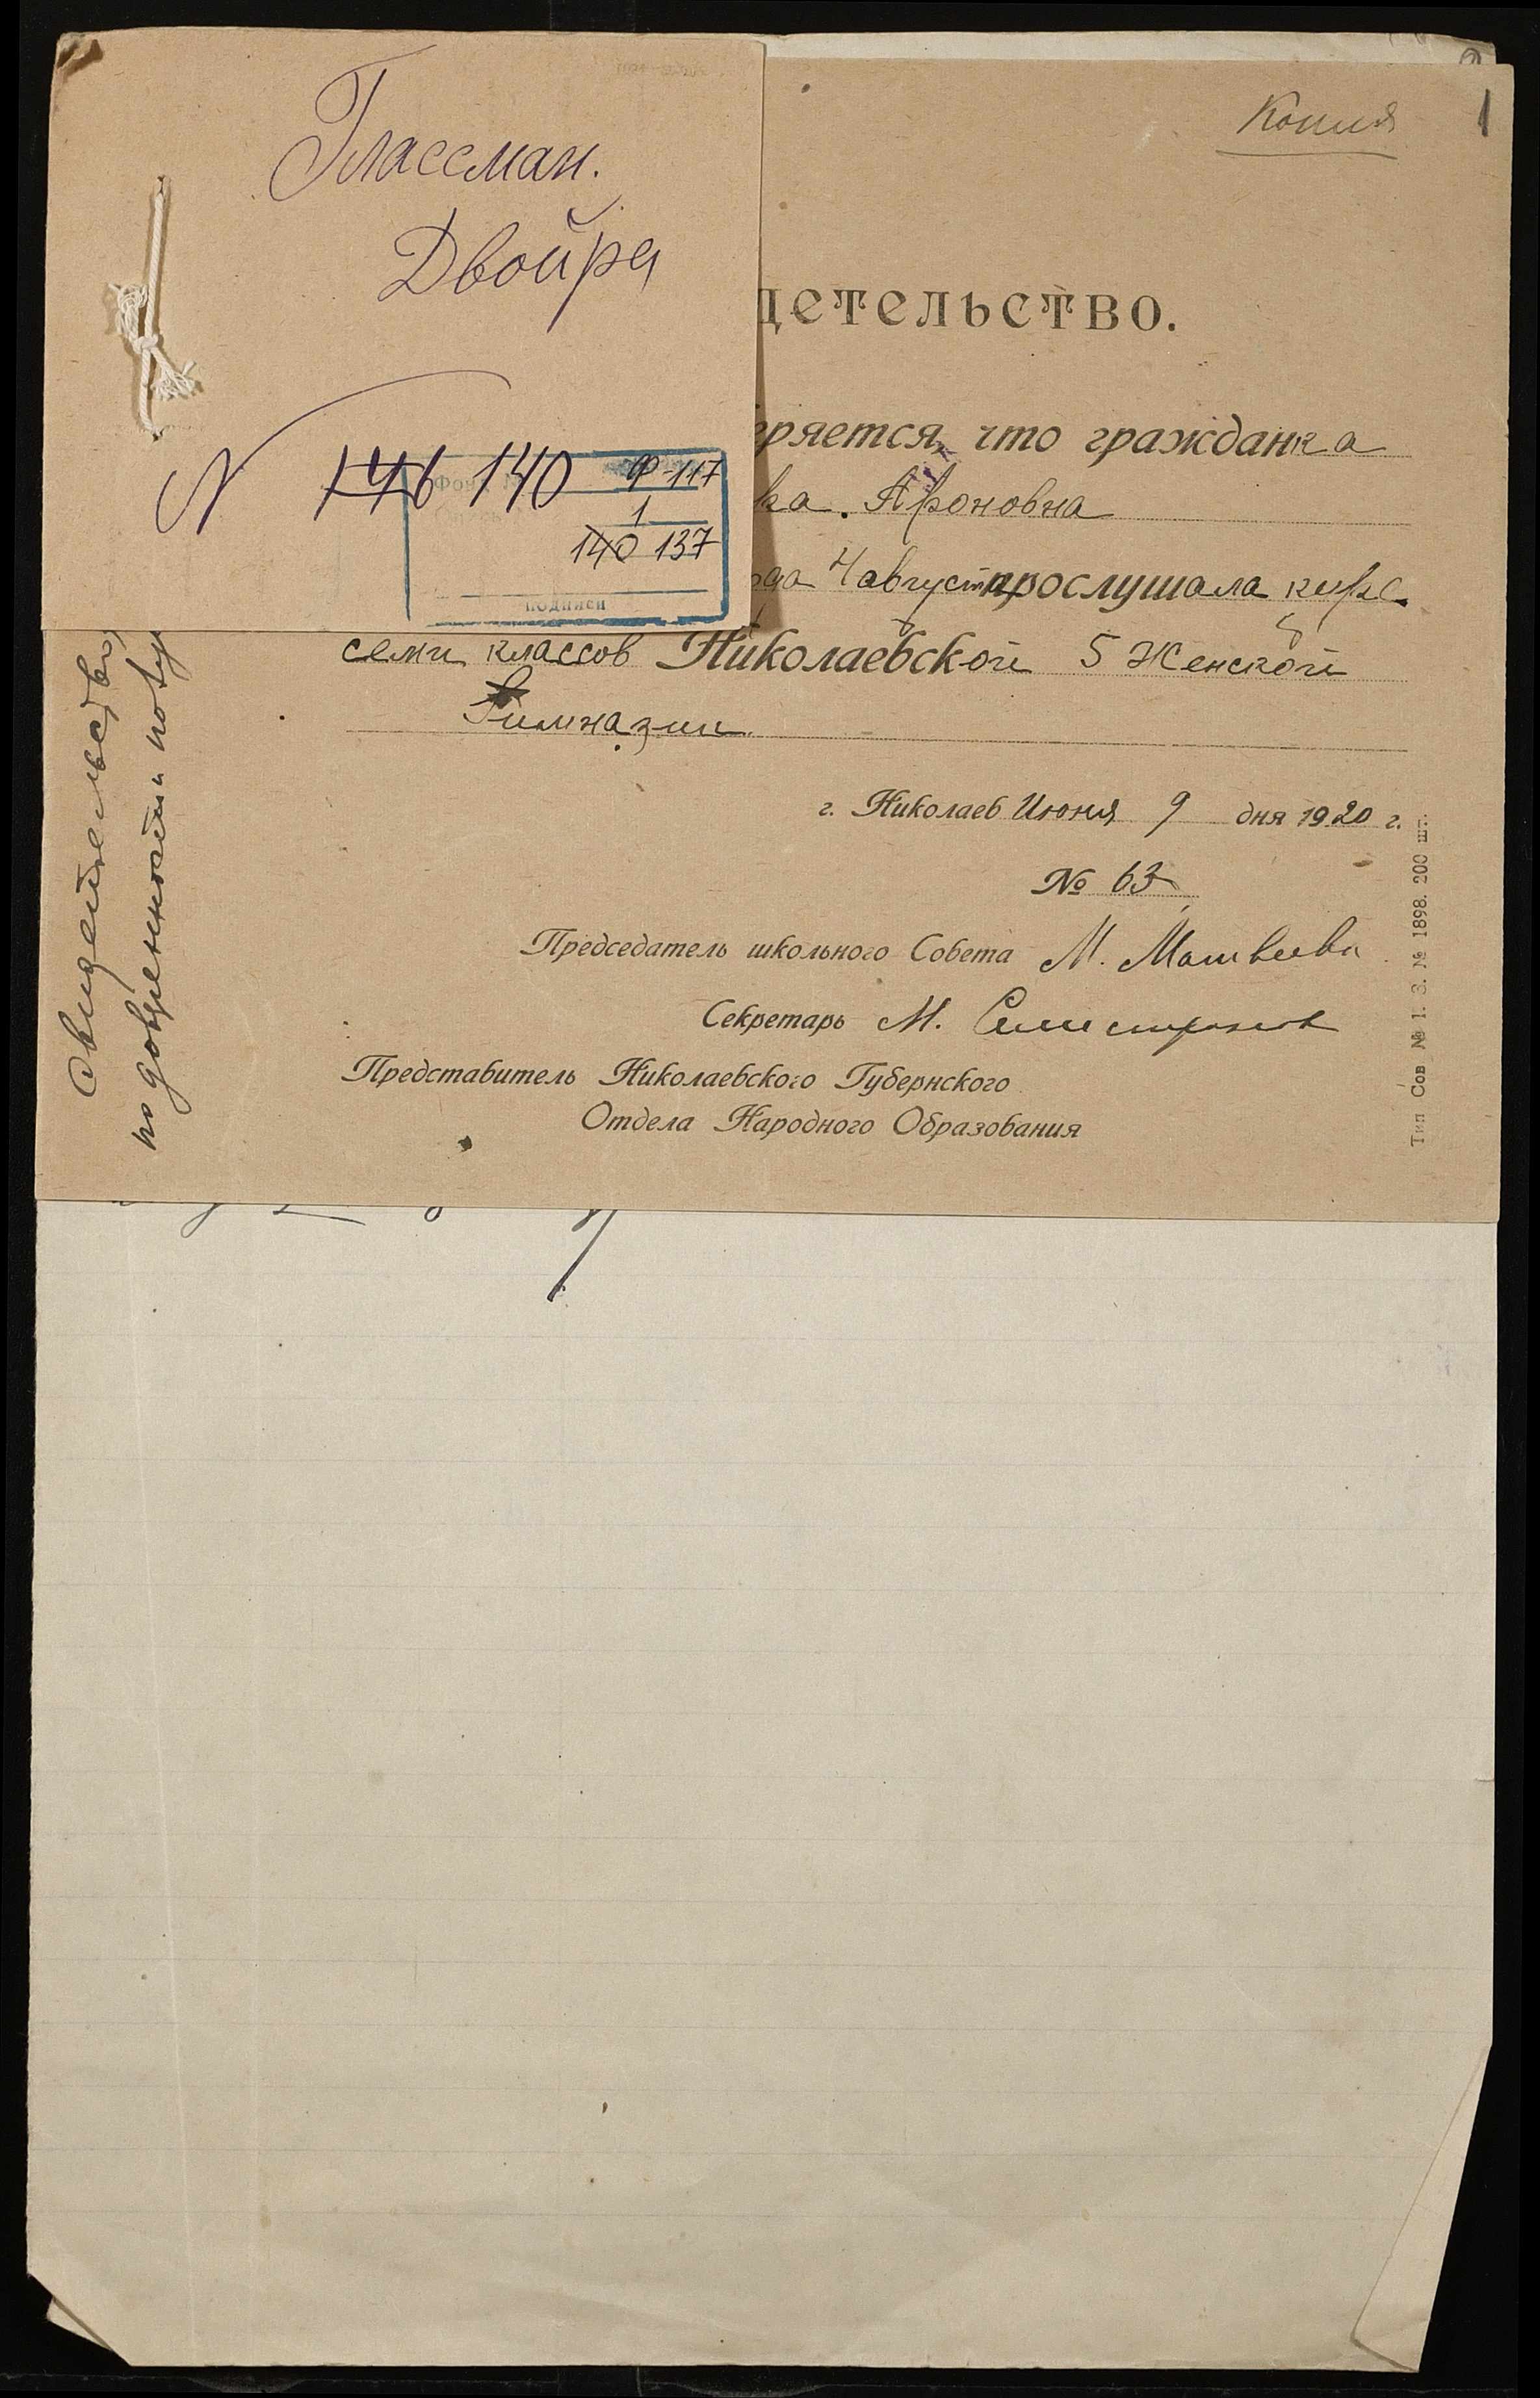 Глассман.
Двойра
N 146 140
Фонд
Ф-117
1
140 137
подписи
Копия
1
детельство.
еряется, что гражданка
ка. Ароновна
ода 4 августа прослушала курс
семи классов Николаевской 5 Женской
Гимназии
г. Николаев Июня 9 дня 1920 г.
№ 63
Председатель школьного Совета М. Матвеева
Секретарь М.
Представитель Николаевского Губернского
Отдела Народного Образования
Тип Сов № 1. З. № 1898. 200 шт.
Свидетельство